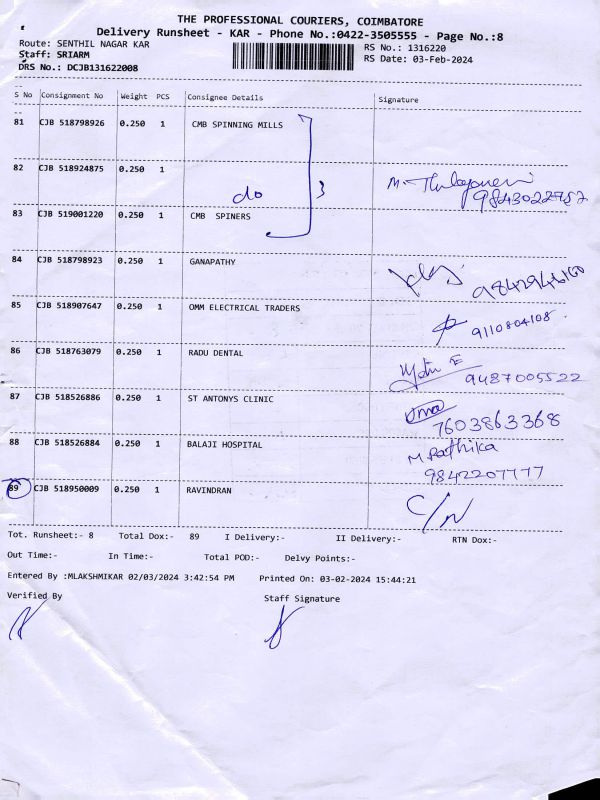 THE PROFESSIONAL COURIERS, COIMBATORE
Delivery Runsheet - KAR - Phone No.:0422-3505555 - Page No.:8
Route: SENTHIL NAGAR KAR RS No.: 1316220
Staff: SRIARM RS Date: 03-Feb-2024
DRS No.: DCJB131622008
S No Consignment No Weight PCS Consignee Details Signature
81 CJB 518798926 0.250 1 CMB SPINNING MILLS
82 CJB 518924875 0.250 1 do 3
83 CJB 519001220 0.250 1 CMB SPINERS
84 CJB 518798923 0.250 1 GANAPATHY
85 CJB 518907647 0.250 1 OMM ELECTRICAL TRADERS 9110804108
86 CJB 518763079 0.250 1 RADU DENTAL 9487005522
87 CJB 518526886 0.250 1 ST ANTONYS CLINIC Uma
7603863368
88 CJB 518526884 0.250 1 BALAJI HOSPITAL M. Rathika
9842207777
89 CJB 518950009 0.250 1 RAVINDRAN C/N
Tot. Runsheet:- 8 Total Dox:- 89 I Delivery:- II Delivery:- RTN Dox:-
Out Time:- In Time:- Total POD:- Delvy Points:-
Entered By :MLAKSHMIKAR 02/03/2024 3:42:54 PM Printed On: 03-02-2024 15:44:21
Verified By Staff Signature